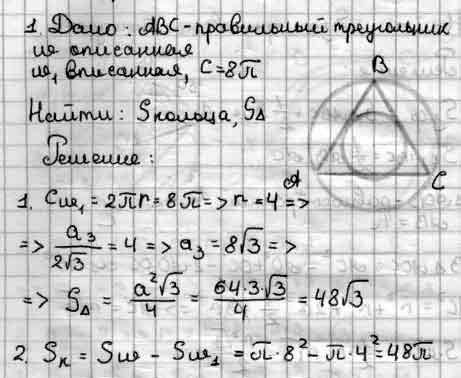 1. Дано: ABC - правильный треугольник
ω описанная
ω₁ вписанная, C = 8π
Найти: Sкольца, S△
Решение:
B
A
C
1. Cω₁ = 2πr = 8π => r = 4 =>
=> a₃/2√3 = 4 => a₃ = 8√3 =>
=> S△ = a²√3/4 = 64·3·√3/4 = 48√3
2. Sк = Sω - Sω₁ = π·8² - π·4² = 48π